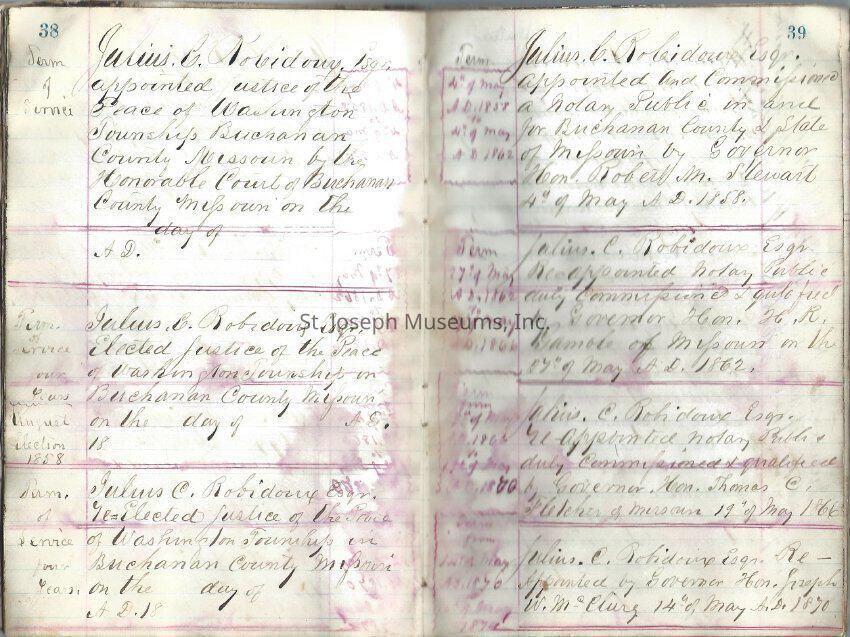 38
Term
of
Service
Julius. C. Robidoux, Esqr.
appointed Justice of the
Peace of Washington
Township Buchanan
County Missouri by the
Honorable Court of Buchanan
County Missouri on the
day of
A.D.
Term.
Service
four
Years
August
election
1858
Julius. C. Robidoux
Elected Justice of the Peace
of Washington Township in
Buchanan County Missouri
on the day of A.D.
18
Term.
of
Service
four
Years.
Julius C. Robidoux Esqr.
re=Elected Justice of the Peace
of Washington Township in
Buchanan County Missouri
on the day of
A D. 18
39
Term
4th of May
A D. 1858
4th of May
A D. 1862
Julius. C. Robidoux Esqr.
appointed and Commissioned
a Notary Public in and
for Buchanan County & State
of Missouri by Governor
Hon. Robert M. Stewart
4th of May A.D. 1858.
Term
27th of May
A.D. 1862
1866
Julius. C. Robidoux Esqr.
Re-appointed Notary Public
duly Commissioned &
by Governor Hon. H. R.
Gamble of Missouri on the
27th of May A D. 1862.
Term
from
of May
1866
of May
1870
Julius. C. Robidoux Esqr.
re-appointed Notary Public
duly Commissioned & qualified
by Governor. Hon. Thomas C.
Fletcher of Missouri 19th of May 1866
Term
from
14th of May
A.D. 1870
of May
1874
Julius. C. Robidoux Esqr. Re-
appointed by Governor Hon. Joseph
W. McClurg 14th of May A.D. 1870
St. Joseph Museums, Inc.